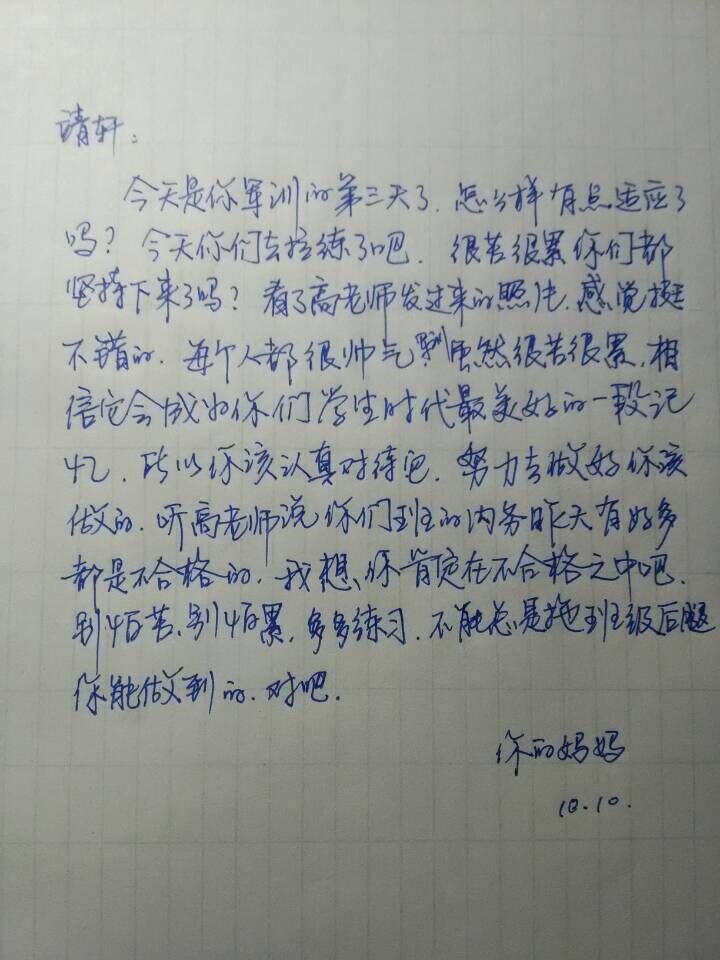 靖轩：
今天是你军训的第三天了．怎么样有点适应了
吗？今天你们去拉练了吧．很苦很累你们都
坚持下来了吗？看了高老师发过来的照片．感觉挺
不错的．每个人都很帅气！虽然很苦很累．相
信它会成为你们学生时代最美好的一段记
忆．所以你该认真对待它．努力去做好你该
做的．听高老师说你们班的内务昨天有好多
都是不合格的．我想．你肯定在不合格之中吧．
别怕苦．别怕累．多多练习．不能总是拖班级后腿
你能做到的．对吧．
你的妈妈
10.10.